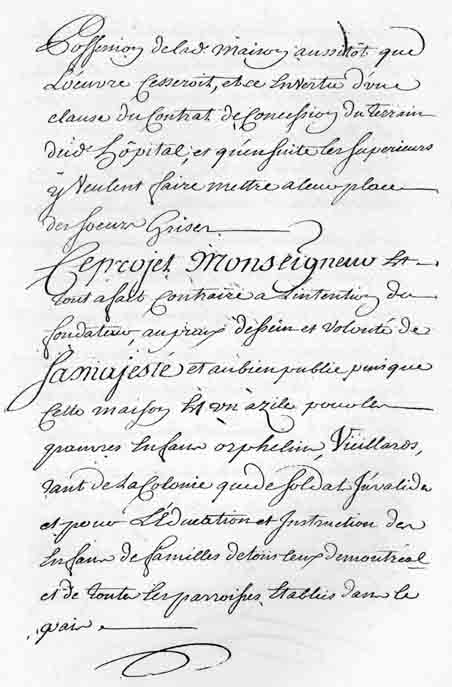 Possession de lad. maison aussitôt que
L'œuvre Cesseroit, et ce En vertu d'une
clause du Contrat de Concession du terrain
dud. hôpital, et qu'ensuite les superieurs
y Veulent faire mettre a leur place
des soeurs Grises
Ce projet Monseigneur Est
tout a fait Contraire a L'intention du
fondateur, au pieux dessein et volonté de
sa majesté et au bien public puisque
Cette maison Est un azile pour les
pauvres Enfans orphelins, Vieillards,
tant de La Colonie que de soldats Invalides
et pour L'Education et Instruction des
Enfans de familles de tous lieux de montréal
et de toutes Les parroisses Etablies dans le
païs